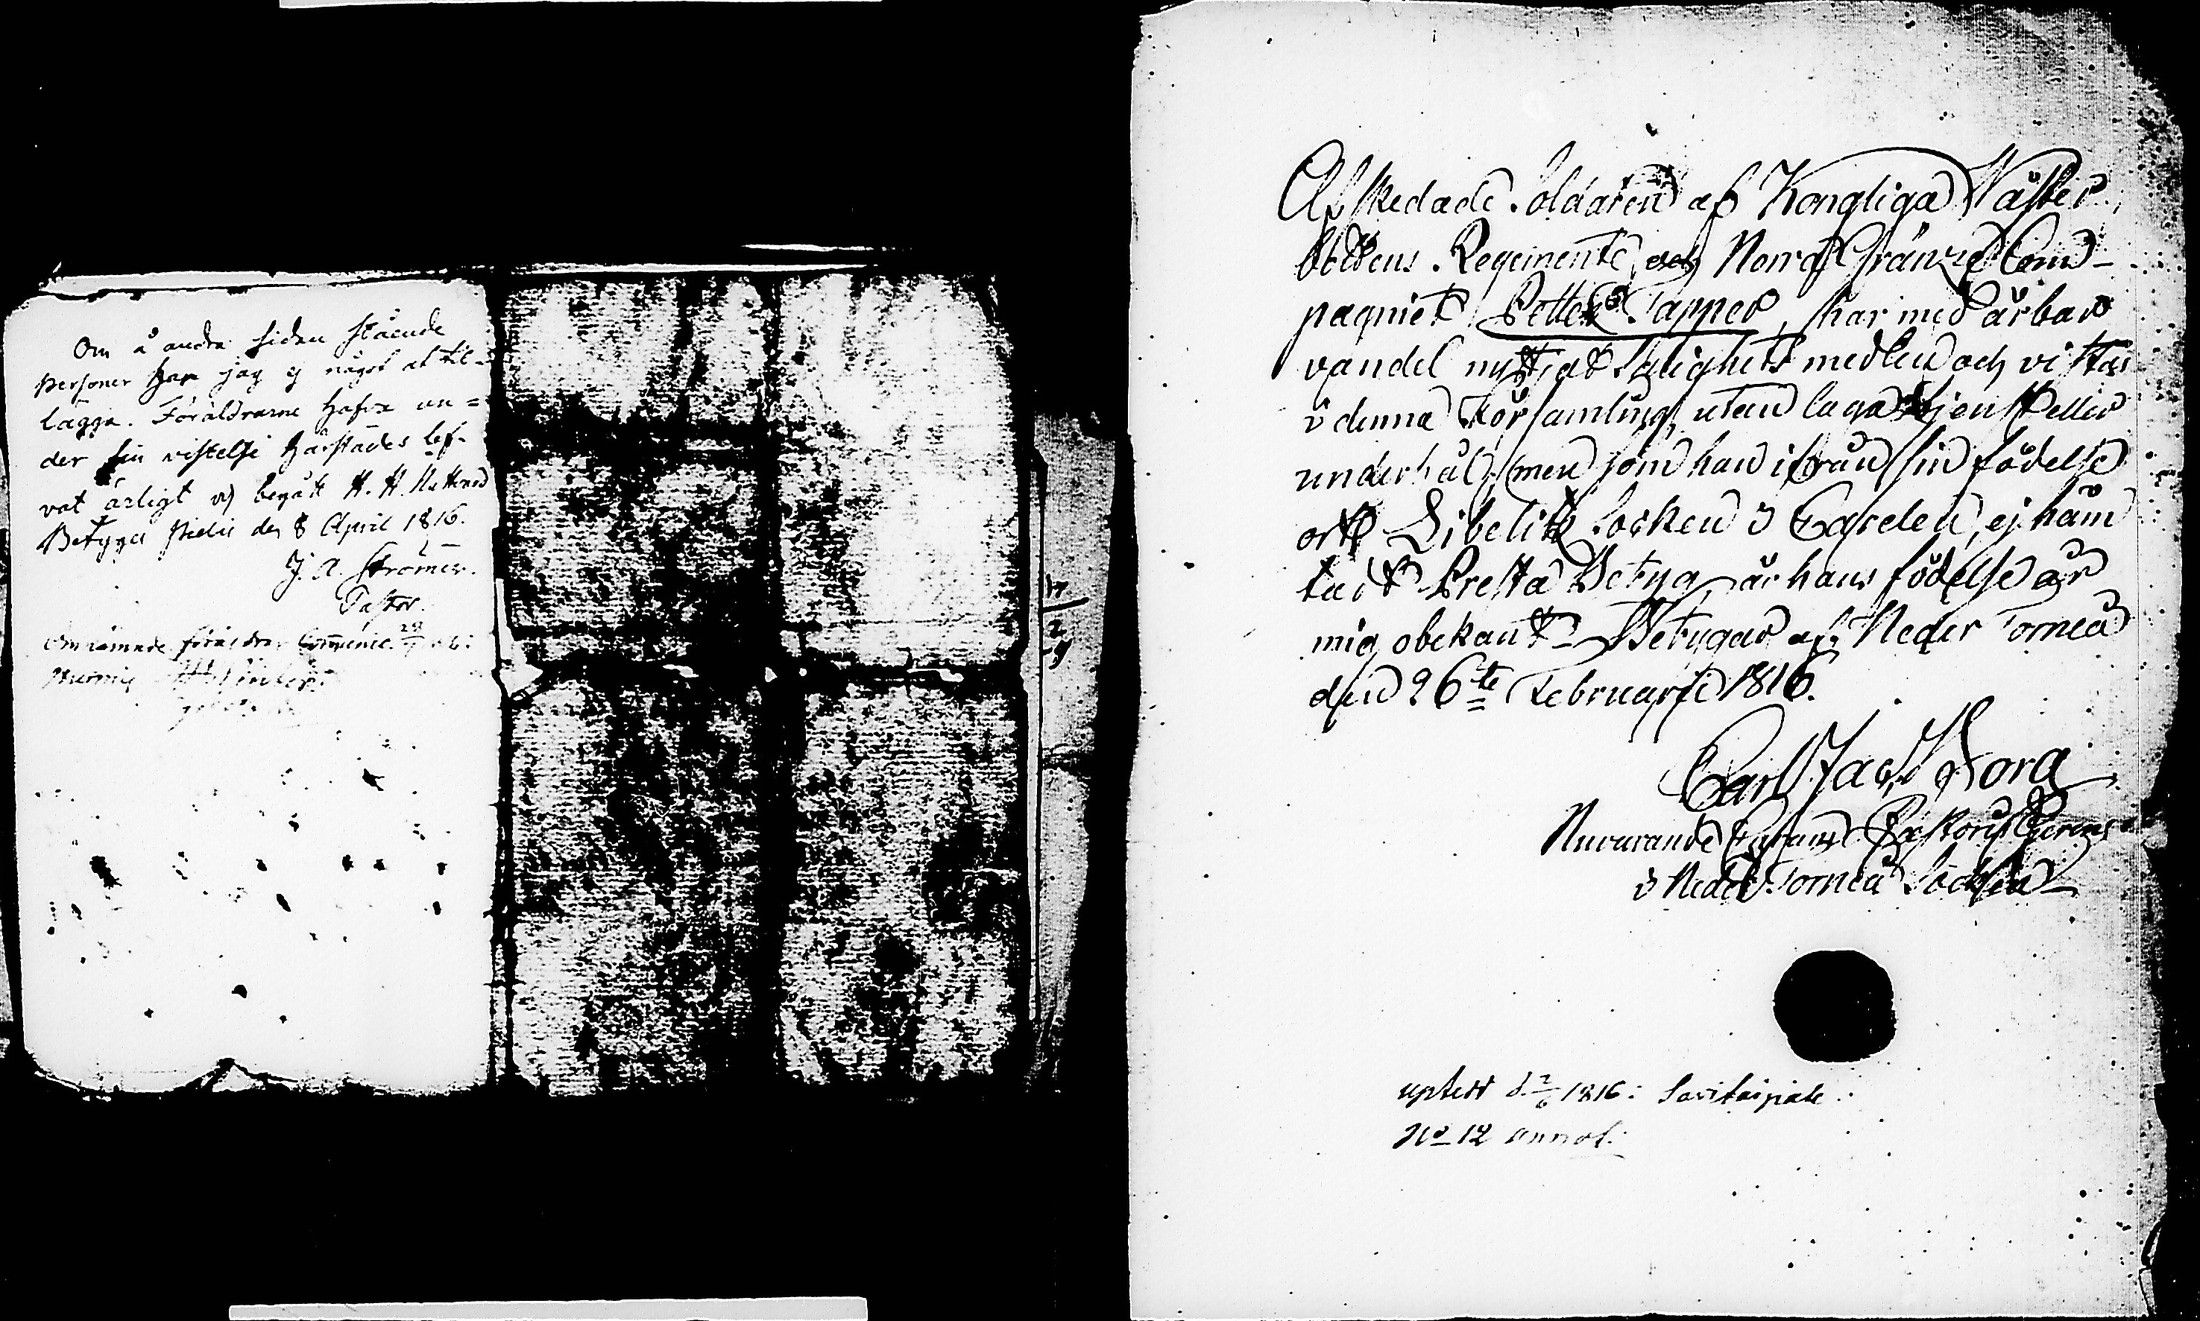 Om å andra sidan stående
personer har jag ej något at til-
lägga. Föräldrarne hafva un=
der sin vistelse härstädes lef-
vat ärligt och begått H. H. Nattvard
Betygar Pielis den 8 April 1816.
J. A. Strömer.
Pastor.
Omnämnde föräldrar Communic.
Afskedade Soldaten af Kongliga Väster
bottens Regemente och Norra Gränse Com-
pagniet Petter Tapper, har med ärbar
vandel nyttjat Salighets medlen och vistas
i denna Församling, utan laga tjenst eller
underhål; men som han ifrån sin födelse
ort Libelitz Socken i Carelen, ej häm
tadt Presta Betyg, är hans födelse år
mig obekant. Betygar af Neder Torneå
den 26te Februarii 1816.
Carl Jac. Borg
Nuvarande Pastoris
i Neder Torneå Socken
uptedt d. 2/6 1816: Savitaipale
No 12 annot.